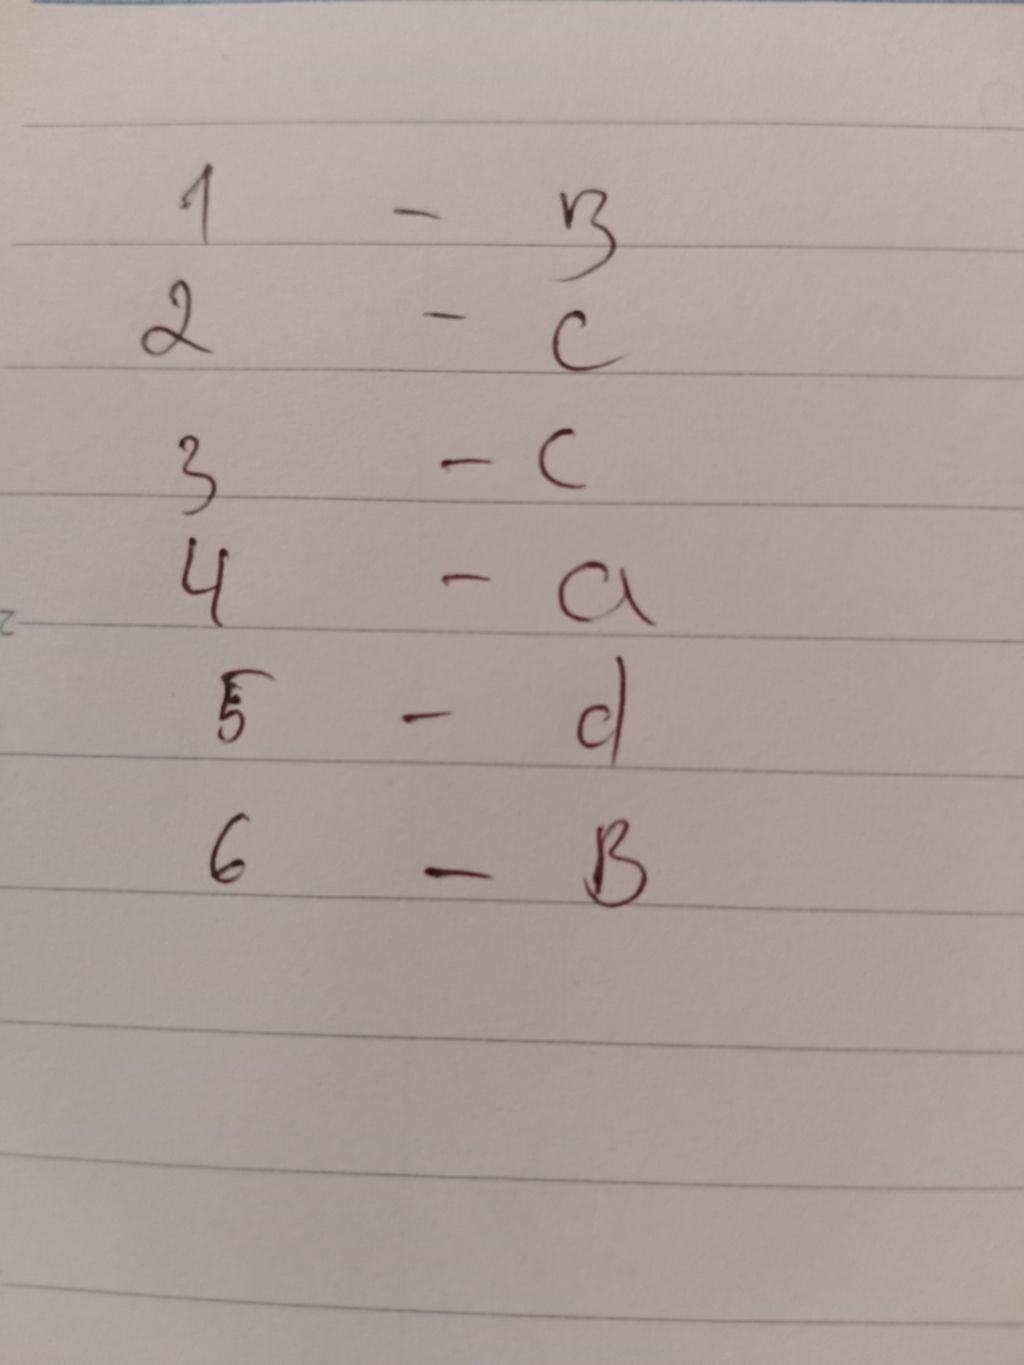 1 - B
2 - C
3 - C
4 - a
5 - d
6 - B